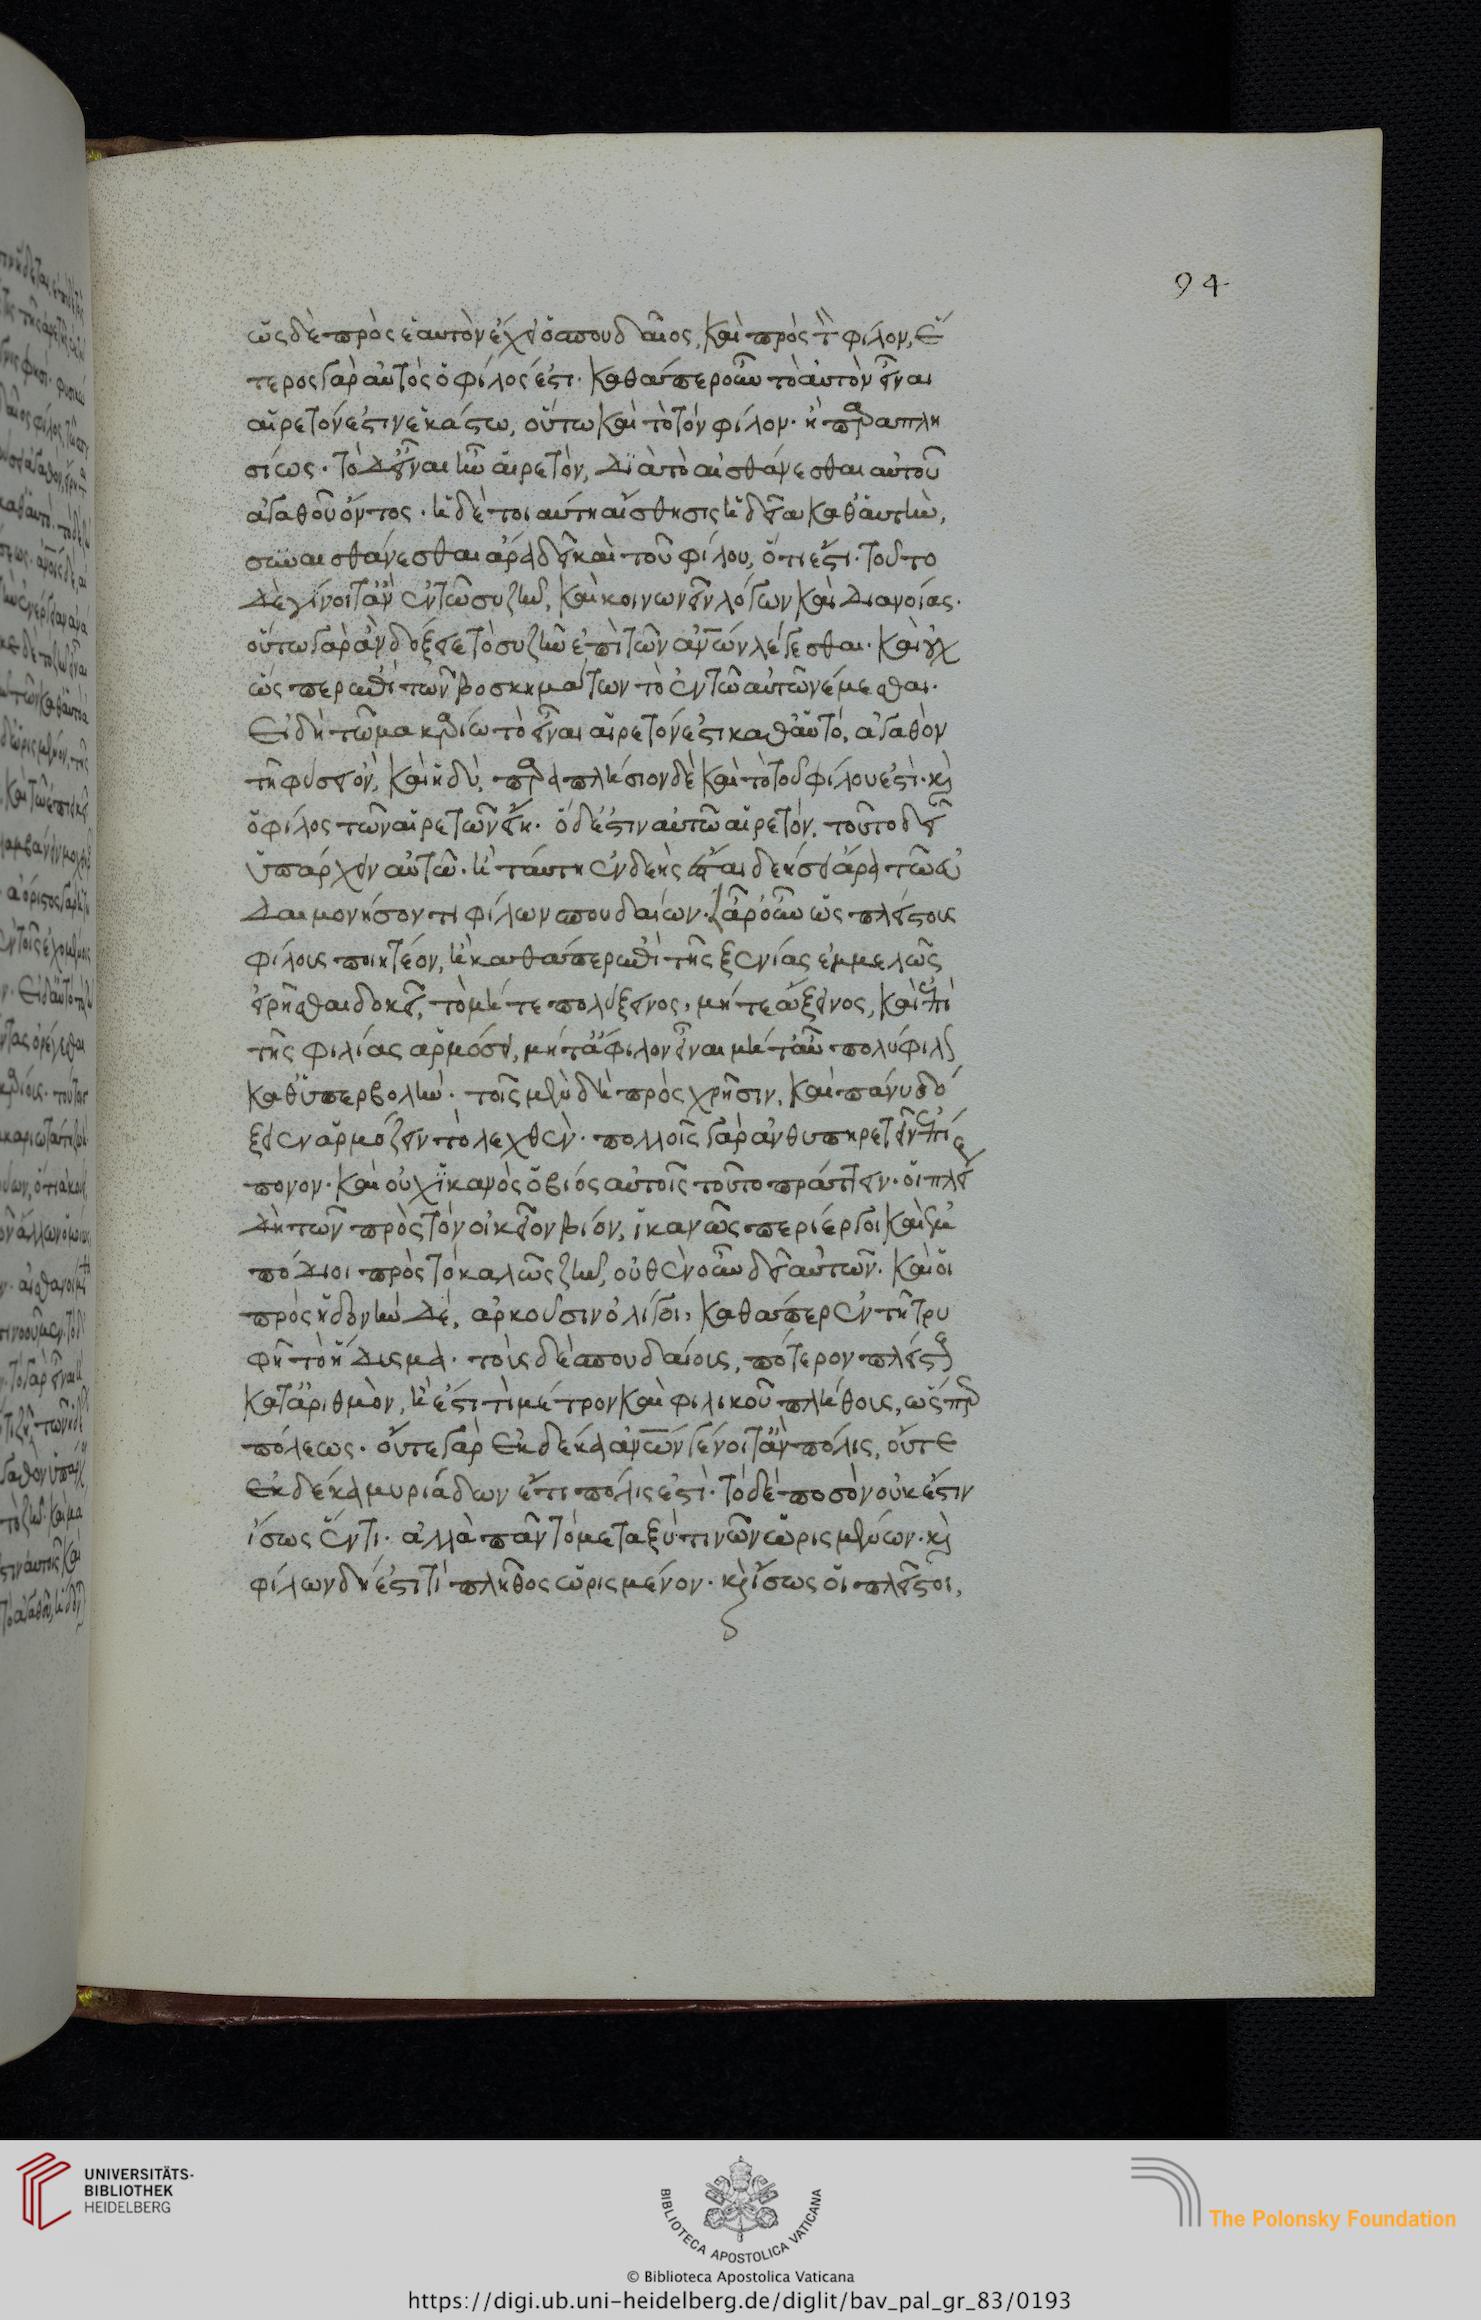 94
ὡς δὲ πρὸς ἑαυτὸν ἔχει ὁ σπουδαῖος, καὶ πρὸς τὸν φίλον, ἕ
τερος γὰρ αὐτὸς ὁ φίλος ἐστι. καθάπερ οὖν τὸ αὐτὸν εἶναι
αἱρετόν ἐστιν ἑκάστω, οὕτω καὶ τὸ τὸν φίλον. ἢ παραπλη
σίως. τὸ δ' εἶναι ἦν αἱρετὸν, διὰ τὸ αἰσθάνεσθαι αὐτοῦ
ἀγαθοῦ ὄντος. ἡ δὲ τοιαύτη αἴσθησις ἡδεῖα καθ' αὑτὴν,
συναισθάνεσθαι ἄρα δεῖ καὶ τοῦ φίλου, ὅτι ἔστι. τοῦτο
δὲ γίνοιτ' ἂν ἐν τῶ συζῆν, καὶ κοινωνεῖν λόγων καὶ διανοίας.
οὕτω γὰρ ἂν δόξειε τὸ συζῆν ἐπὶ τῶν ἀνων λέγεσθαι. καὶ οὐχ
ὥσπερ ἐπὶ τῶν βοσκημάτων τὸ ἐν τῶ αὐτῶ νέμεσθαι.
Εἰ δὴ τῶ μακαρίω τὸ εἶναι αἱρετόν ἐστι καθ' αὑτό, ἀγαθὸν
τῆ φύσει ὂν, καὶ ἡδύ, παραπλήσιον δὲ καὶ τὸ τοῦ φίλου ἐστὶ. καὶ
ὁ φίλος τῶν αἱρετῶν εἴη. ὃ δ' ἐστὶν αὐτῶ αἱρετόν, τοῦτο δεῖ
ὑπάρχειν αὐτῶ. ἢ ταύτη ἐνδεὴς ἔσται δεήσει ἄρα τῶ εὐ
δαιμονήσοντι φίλων σπουδαίων. ἆρ' οὖν ὡς πλείστους
φίλους ποιητέον, ἢ καθάπερ ἐπὶ τῆς ξενίας ἐμμελῶς
εἰρῆσθαι δοκεῖ, τὸ μήτε πολύξεινος, μήτε ἄξεινος, καὶ ἐπὶ
τῆς φιλίας ἁρμόσει, μήτ' ἄφιλον εἶναι μήτ' αὖ πολύφιλον
καθ' ὑπερβολήν. τοῖς μὲν δὴ πρὸς χρῆσιν, καὶ πάνυ δό
ξειεν ἁρμόζειν τὸ λεχθὲν. πολλοῖς γὰρ ἀνθυπηρετεῖν ἐπί
πονον. καὶ οὐχ ἱκανὸς ὁ βιός αὐτοῖς τοῦτο πράττειν. οἱ πλεί
δὴ τῶν πρὸς τὸν οἰκεῖον βίον, ἱκανῶς περίεργοι καὶ ἐμ
πόδιοι πρὸς τὸ καλῶς ζῆν, οὐθὲν οὖν δεῖ αὐτῶν. καὶ οἱ
πρὸς ἡδονὴν δέ, ἀρκοῦσιν ὀλίγοι, καθάπερ ἐν τῆ τρυ
φῆ τὸ ἥδισμα. τοὺς δὲ σπουδαίους, πότερον πλείστους
κατ' ἀριθμὸν, ἢ ἔστι τὶ μέτρον καὶ φιλικοῦ πλήθους, ὥσπερ
πόλεως. οὔτε γὰρ ἐκ δέκα ἀνων γένοιτ' ἂν πόλις, οὔτε
ἐκ δέκα μυριάδων ἔτι πόλις ἐστὶ. τὸ δὲ ποσὸν οὐκ ἔστιν
ἴσως ἕν τι. ἀλλὰ πᾶν τὸ μεταξὺ τινῶν ὡρισμένων. καὶ
φίλων δή ἐστι τὶ πλῆθος ὡρισμένον. καὶ ἴσως οἱ πλεῖστοι,
UNIVERSITÄTS-
BIBLIOTHEK
HEIDELBERG
BIBLIOTECA APOSTOLICA VATICANA
© Biblioteca Apostolica Vaticana
The Polonsky Foundation
https://digi.ub.uni-heidelberg.de/diglit/bav_pal_gr_83/0193